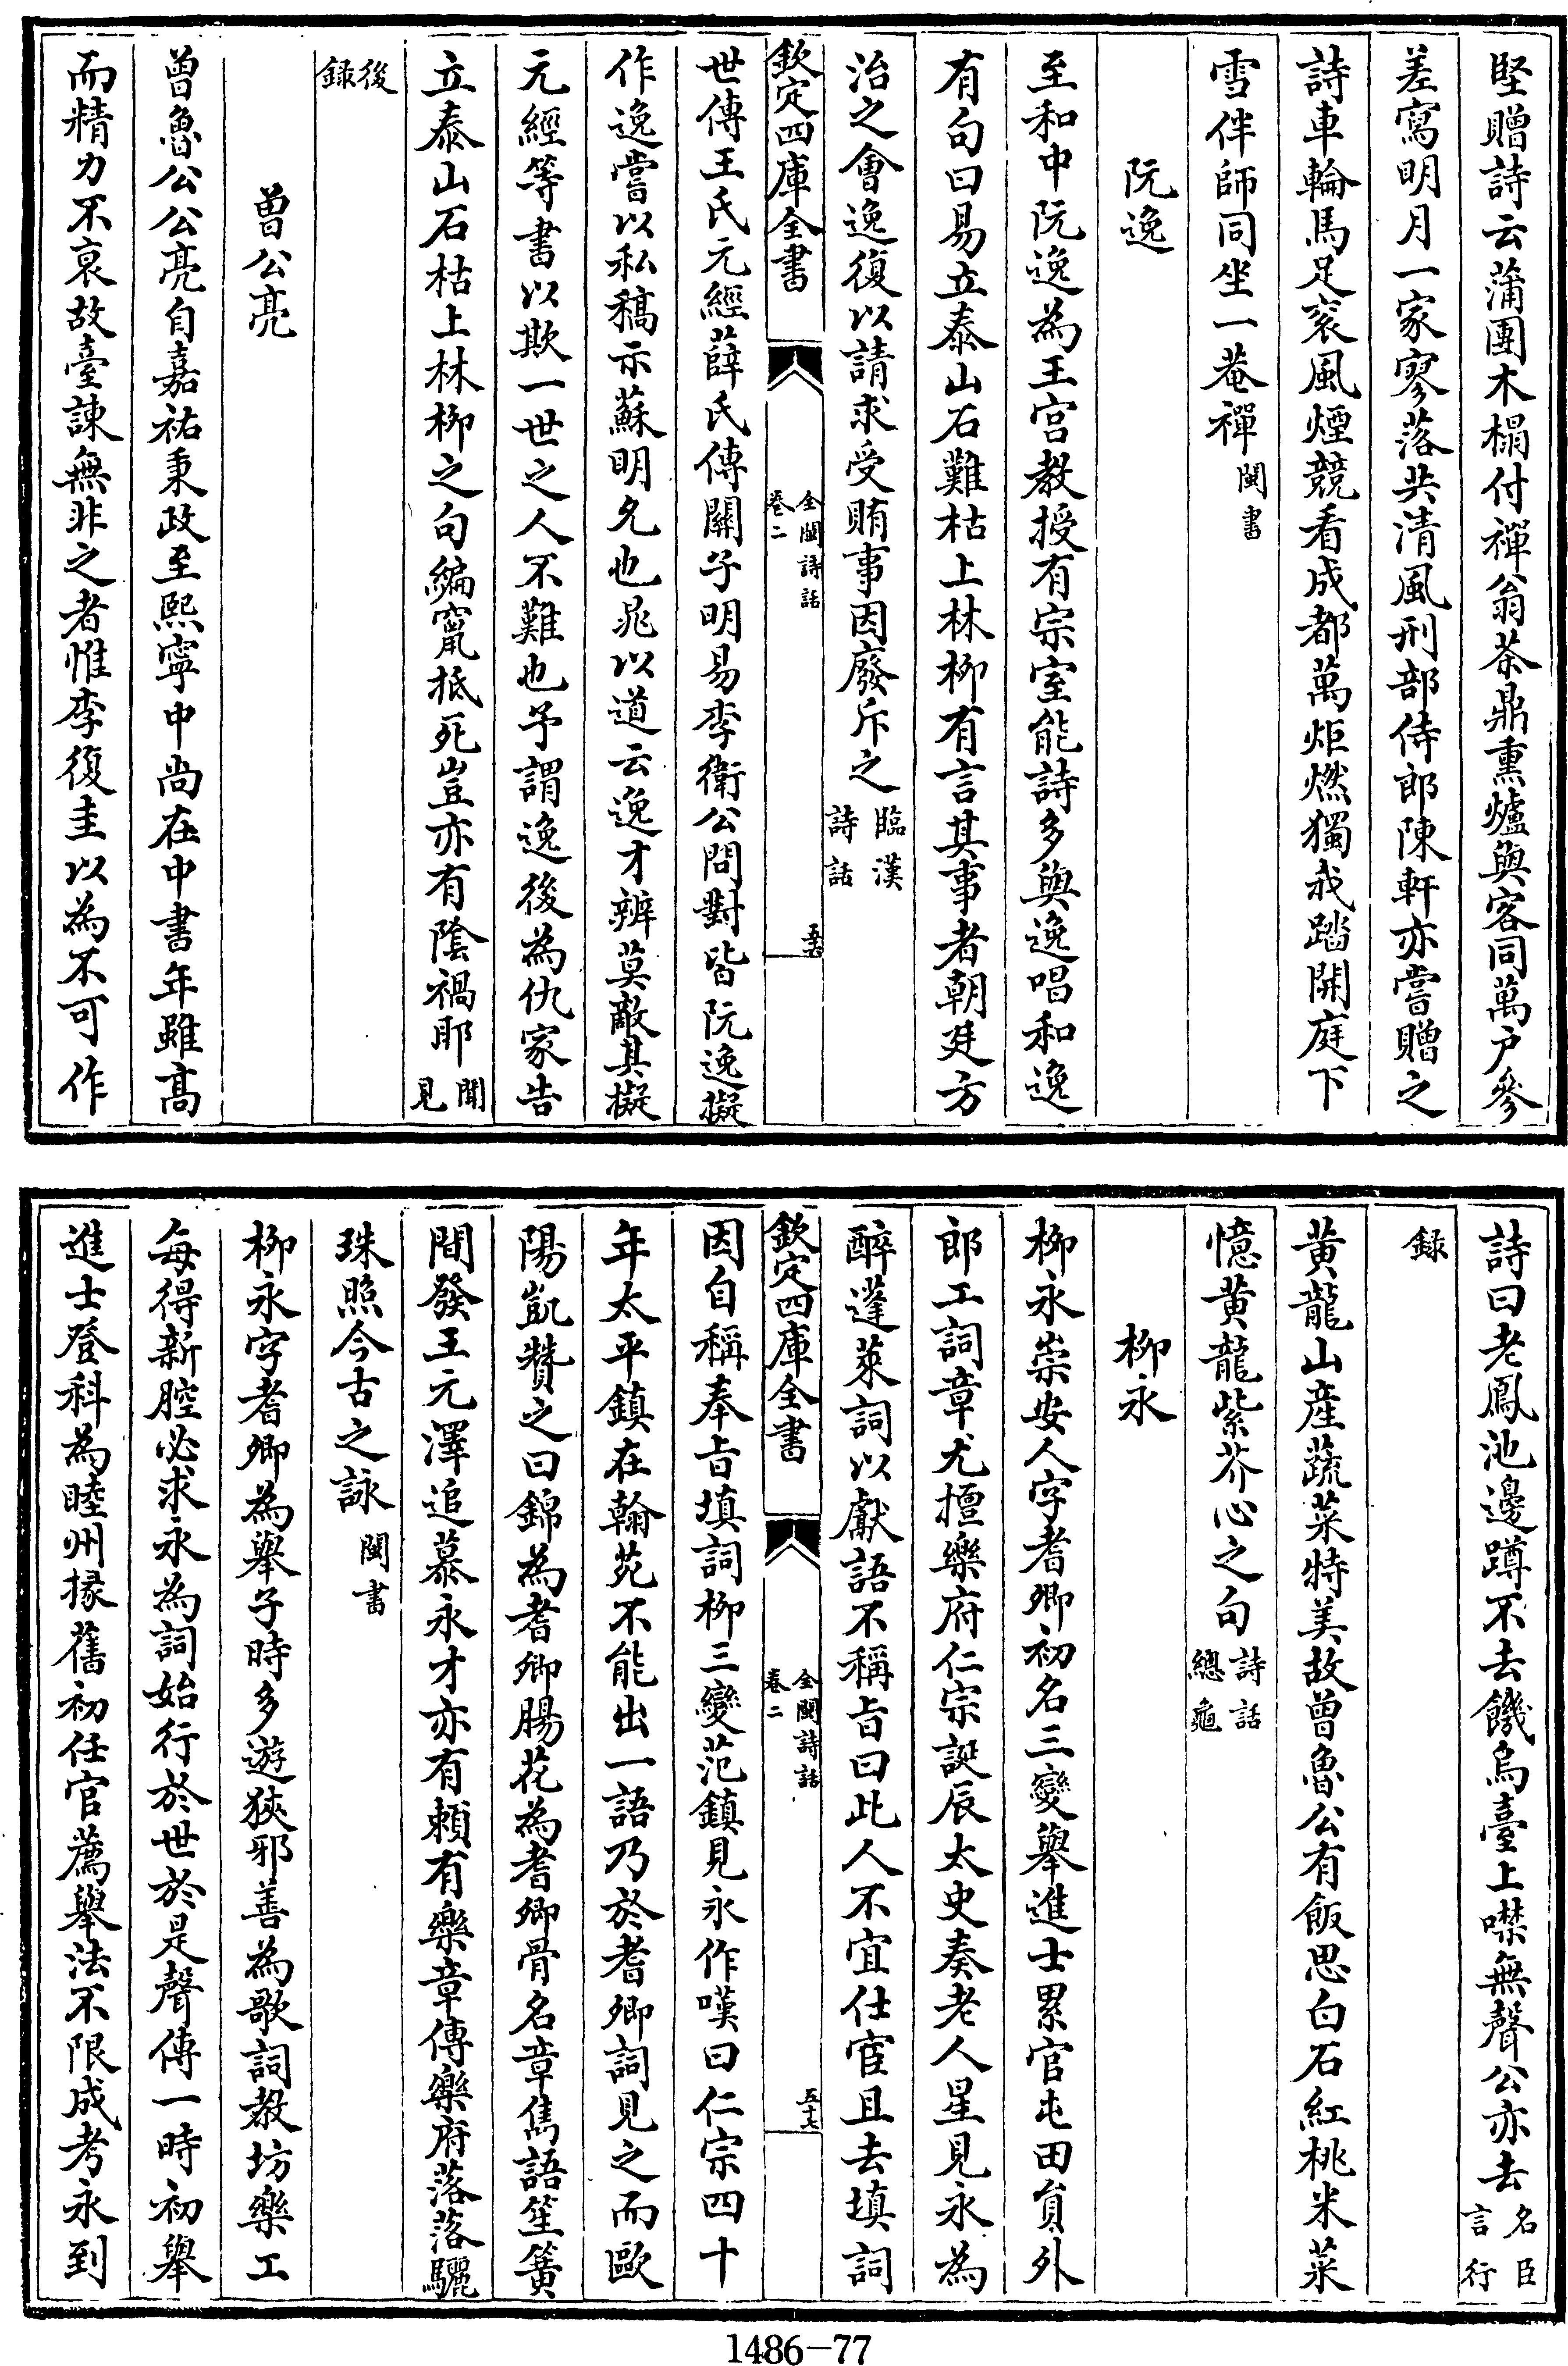 堅贈詩云蒲團木榻付禪翁茶鼎熏爐與客同萬戶參
差寫明月一家寥落共清風刑部侍郎陳軒亦嘗贈之
詩車輪馬足衮風煙競看成都萬炬燃獨我踏開庭下
雪伴師同坐一菴禪閩書
阮逸
至和中阮逸為王宫教授有宗室能詩多與逸唱和逸
有句曰易立泰山石難枯上林柳有言其事者朝廷方
治之會逸復以請求受賄事因廢斥之臨漢詩話
欽定四庫全書
全閩詩話
卷二
五十六
世傳王氏元經薛氏傳關子明易李衛公問對皆阮逸擬
作逸嘗以私稿示蘇明允也晁以道云逸才辨莫敵其擬
元經等書以欺一世之人不難也予謂逸後為仇家告
立泰山石枯上林柳之句編竄抵死豈亦有隂禍耶聞見
後録
曾公亮
曾魯公公亮自嘉祐秉政至熙寧中尚在中書年雖高
而精力不衰故臺諫無非之者惟李復圭以為不可作
詩曰老鳳池邊蹲不去饑烏臺上噤無聲公亦去名臣言行
録
黄龍山産蔬菜特美故曾魯公有飯思白石紅桃米菜
憶黄龍紫芥心之句詩話總龜
柳永
柳永崇安人字耆卿初名三變舉進士累官屯田員外
郎工詞章尤擅樂府仁宗誕辰太史奏老人星見永為
醉蓬萊詞以獻語不稱旨曰此人不宜仕宦且去填詞
欽定四庫全書
全閩詩話
卷二
五十七
因自稱奉旨填詞柳三變范鎮見永作嘆曰仁宗四十
年太平鎮在翰苑不能出一語乃於耆卿詞見之而歐
陽凱贊之曰錦為耆卿腸花為耆卿骨名章雋語笙簧
間發王元澤追慕永才亦有頼有樂章傳樂府落落驪
珠照今古之詠閩書
柳永字耆卿為舉子時多遊狹邪善為歌詞教坊樂工
每得新腔必求永為詞始行於世於是聲傳一時初舉
進士登科為睦州掾舊初任官薦舉法不限成考永到
1486-77